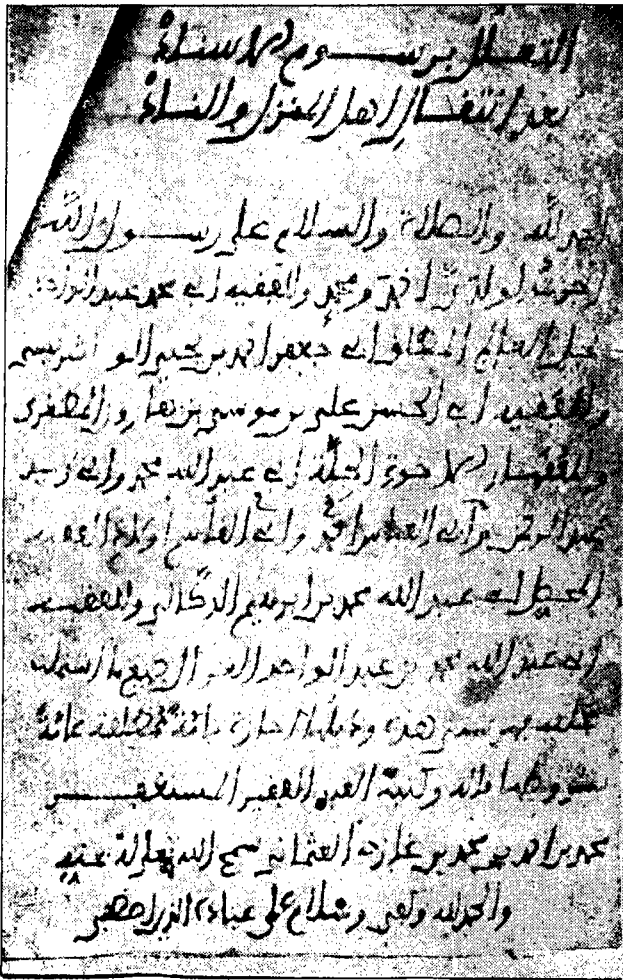 التعلل برسوم الاسناد
بعد انتقال اهل المنزل والناد
الحمد لله والصلاة والسلام على رسول الله
اجزت لولديّ احمد ومحمد والفقيه ابي محمد عبد الواحد
نجل العالم ابي جعفر احمد بن يحيى الونشريسي
والفقيه ابي الحسن علي بن موسى بن هارون المطغري
وللفقهاء الاخوة الجلّة ابي عبد الله محمد وابي زيد
عبد الرحمن وابي العباس احمد وابي القاسم اولاد الفقيه
الخطيب ابي عبد الله محمد بن ابراهيم الدكّالي وللفقيه
ابي عبد الله محمد بن عبد الواحد جميع ما اشتملت
عليه فهرستي هذه وذيلها اجازة تامة مطلقة عامة
بشروطها وكتبه العبد الفقير المستغفر
محمد بن احمد بن محمد بن غازي العثماني سمح الله تعالى له بمنه
والحمد لله وكفى وسلام على عباده الذين اصطفى